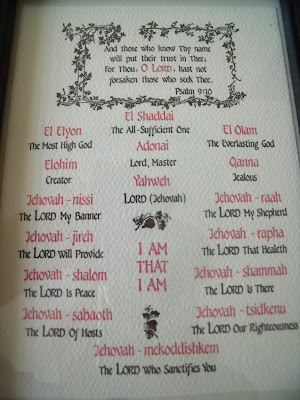 And those who know Thy name
will put their trust in Thee;
For Thou, O LORD, hast not
forsaken those who seek Thee.
Psalm 9:10
El Shaddai
The All-Sufficient One
El Elyon
The Most High God
Adonai
Lord, Master
El Olam
The Everlasting God
Elohim
Creator
Yahweh
LORD (Jehovah)
Qanna
Jealous
Jehovah - nissi
The LORD My Banner
Jehovah - raah
The LORD My Shepherd
Jehovah - jireh
The LORD will Provide
I AM
THAT
I AM
Jehovah - rapha
The LORD That Healeth
Jehovah - shalom
The LORD Is Peace
Jehovah - shammah
The LORD Is There
Jehovah - sabaoth
The LORD Of Hosts
Jehovah - tsidkenu
The LORD Our Righteousness
Jehovah - mekoddishkem
The LORD Who Sanctifies You